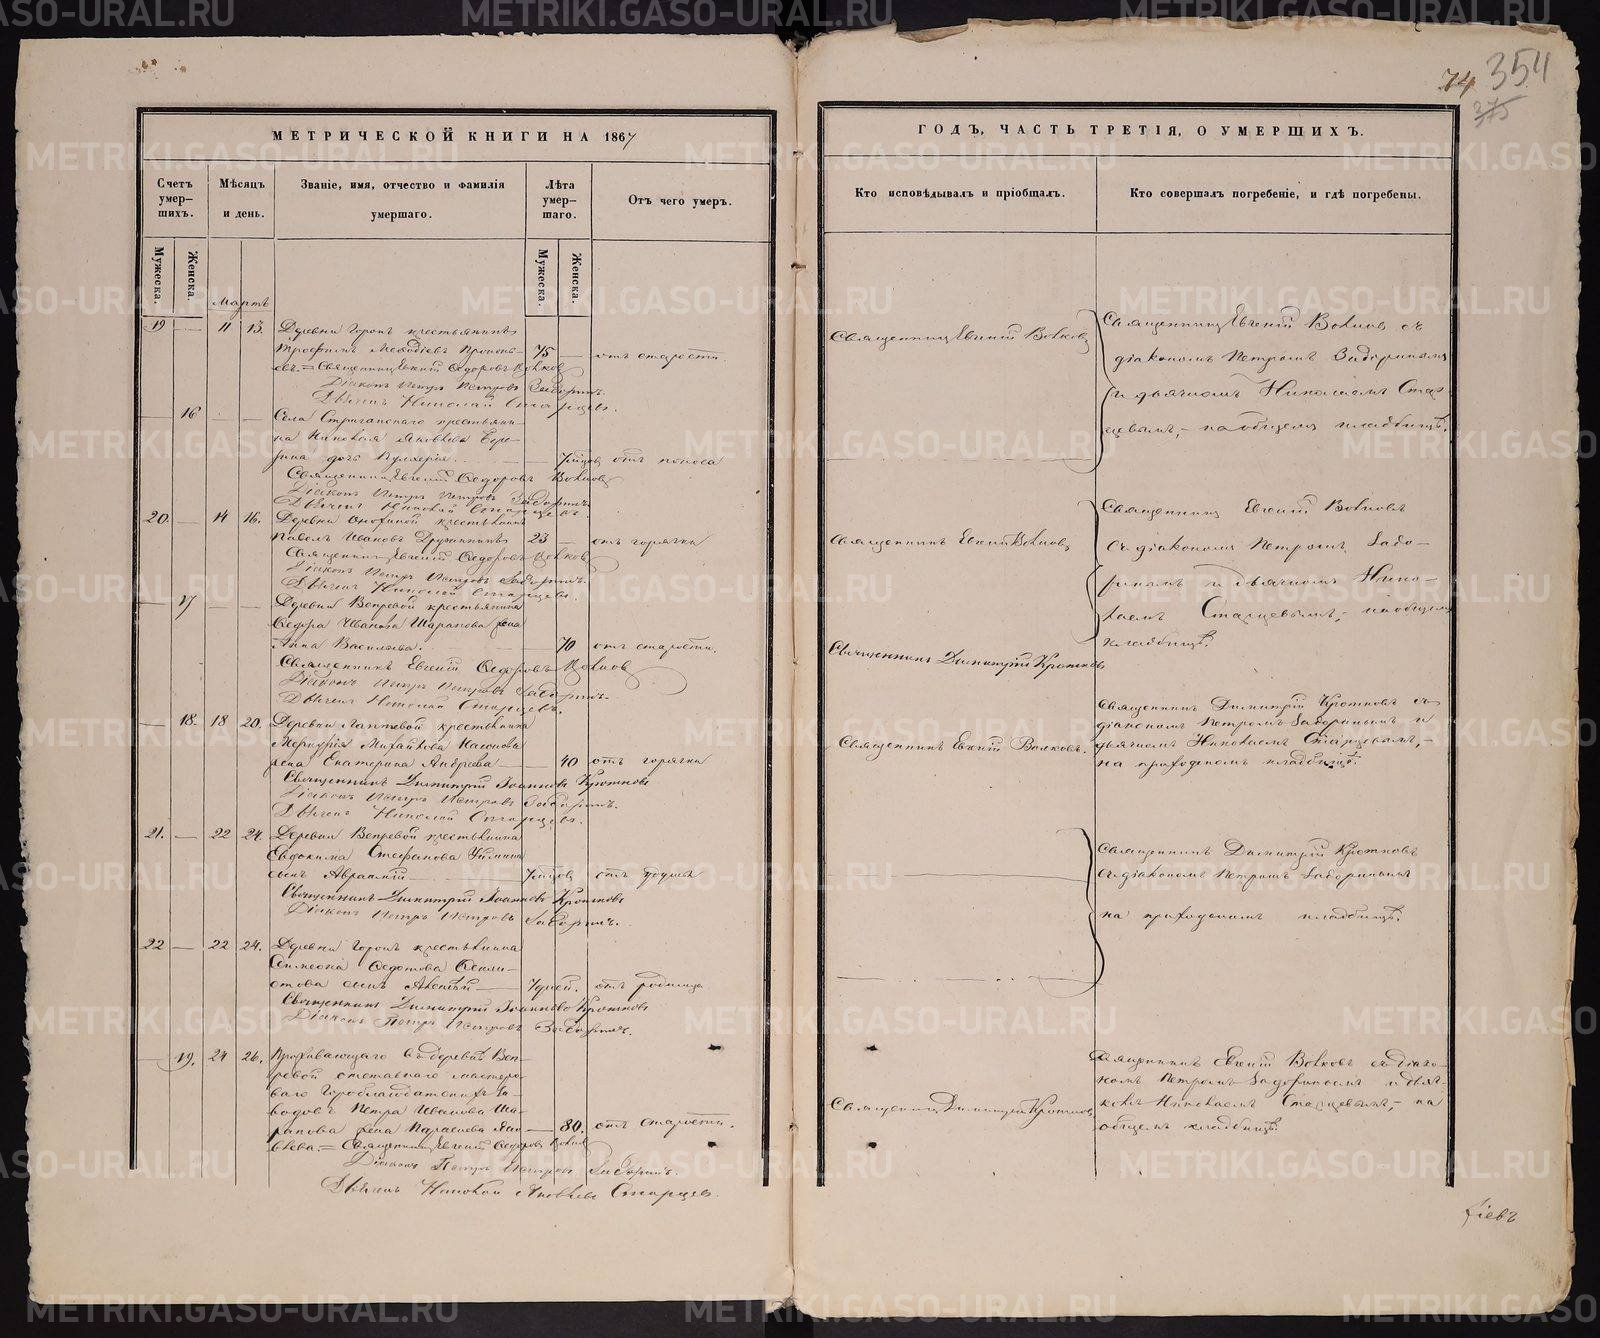 74 354
375
МЕТРИЧЕСКОЙ КНИГИ НА 1867
ГОДЪ, ЧАСТЬ ТРЕТІЯ, О УМЕРШИХЪ.
Счетъ умер-шихъ.
Мѣсяцъ и день.
Званіе, имя, отчество и фамилія умершаго.
Лѣта умер-шаго.
Отъ чего умеръ.
Кто исповѣдывалъ и пріобщалъ.
Кто совершалъ погребеніе, и гдѣ погребены.
Мужеска.
Женска.
Мужеска.
Женска.
Мартъ
19 — 11 13. Деревни Горокъ крестьянинъ
Трофимъ Меѳодіевъ 75 — отъ старости.
Священникъ Евгеній Ѳедоровъ Волковъ
Діаконъ Петръ Петровъ Задоринъ.
Дьячекъ Николай Старцевъ.
Священникъ Евгеній Волковъ
Священникъ Евгеній Волковъ съ
діакономъ Петромъ Задоринымъ
и дьячкомъ Николаемъ Стар-
цевымъ, на общемъ кладбищѣ.
— 16 — — Села Стриганскаго крестьяни-
на Николая Яковлева
дочь Пулхерія. отъ поноса
Священникъ Евгеній Ѳедоровъ Волковъ
Діаконъ Петръ Петровъ Задоринъ.
Дьячекъ Николай Старцевъ.
20. — 14 16. Деревни крестьянинъ
Павелъ Ивановъ Дружининъ 23 — отъ горячки
Священникъ Евгеній Ѳедоровъ Волковъ
Діаконъ Петръ Петровъ Задоринъ.
Дьячекъ Николай Старцевъ.
Священникъ Евгеній Волковъ
Священникъ Евгеній Волковъ
съ діакономъ Петромъ Задо-
ринымъ и дьячкомъ Нико-
лаемъ Старцевымъ, на общемъ
кладбищѣ.
— 17 — — Деревни Вепревой крестьянина
Ѳедора Иванова Шарапова жена
Анна Васильева. — 70 отъ старости.
Священникъ Евгеній Ѳедоровъ Волковъ
Діаконъ Петръ Петровъ Задоринъ.
Дьячекъ Николай Старцевъ.
Священникъ Димитрій Кротковъ
— 18. 18 20. Деревни Лаптевой крестьянина
Меркурія Михайлова
жена Екатерина Андреева — 40 отъ горячки
Священникъ Димитрій Іоанновъ Кротковъ
Діаконъ Петръ Петровъ Задоринъ.
Дьячекъ Николай Старцевъ.
Священникъ Евгеній Волковъ.
Священникъ Димитрій Кротковъ съ
діакономъ Петромъ Задоринымъ и
дьячкомъ Николаемъ Старцевымъ,
на приходскомъ кладбищѣ.
21. — 22 24. Деревни Вепревой крестьянина
Евдокима Стефанова
сынъ Авраамій
Священникъ Димитрій Іоанновъ Кротковъ
Діаконъ Петръ Петровъ Задоринъ.
Священникъ Димитрій Кротковъ
съ діакономъ Петромъ Задоринымъ
на приходскомъ кладбищѣ.
22 — 22 24. Деревни Горокъ крестьянина
Симеона Ѳедотова
сынъ Алексѣй — 7 дней. отъ родимца
Священникъ Димитрій Іоанновъ Кротковъ
Діаконъ Петръ Петровъ Задоринъ.
— 19. 24 26. Проживающаго въ деревнѣ Веп-
ревой отставнаго мастеро-
ваго Гороблагодатскихъ за-
водовъ Петра Иванова Ша-
рапова жена — 80. отъ старости.
Священникъ Евгеній Ѳедоровъ Волковъ
Діаконъ Петръ Петровъ Задоринъ.
Дьячекъ Николай Яковлевъ Старцевъ.
Священникъ Димитрій Кротковъ
Священникъ Евгеній Волковъ съ діако-
номъ Петромъ Задоринымъ и дьяч-
комъ Николаемъ Старцевымъ, на
общемъ кладбищѣ.
METRIKI.GASO-URAL.RU